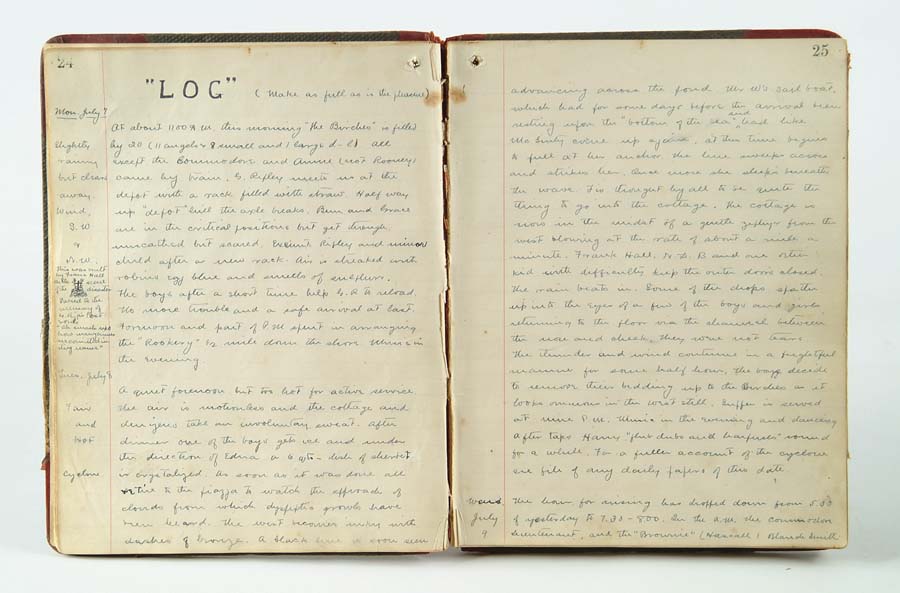 24
"LOG" (Make as full as is the pleasure)
Mon. July 7
At about 11.00 A.M. this morning "the Birches" is filled
Slightly
by 20 (11 angels & 8 small and 1 large d-l) all
rainy
except the Commodore and Annie (not Rooney)
but clears
came by train. G. Ripley meets us at the
away
depot with a rack filled with straw. Half way
Wind,
up "depot" hill the axle breaks. Bem and Grace
S.W
are in the critical positions but get through
&
unscathed but scared. Exeunt Ripley and minor
N.W.
child after a new rack. Air is streaked with
This was built
by Hall
robins egg blue and smells of sulphur.
The boys after a short time help G.R. to reload.
Sacred to the
memory of
No more trouble and a safe arrival at last.
Forenoon and part of P.M. spent in arranging
the "Rookery" ½ mile down the shore. Music in
the evening
Tues. July 8
A quiet forenoon but too hot for active service
Fair
The air is motionless and the cottage and
and
denizens take an involuntary sweat. After
Hot
dinner one of the boys gets ice and under
the direction of Edna a 6 qts. dish of sherbet
Cyclone.
is crystalized. As soon as it was done all
retire to the piazza to watch the approach of
clouds from which dyspeptic growls have
been heard. The west becomes inky with
dashes of bronze. A black line is soon seen
25
advancing across the pond. Mr W's sail boat,
which had for some days before the arrival been
resting upon the "bottom of the sea" and had like
McGinty come up again, at this time begins
to pull at her anchor the line sweeps across
and strikes her. Once more she sleeps beneath
the wave. It is thought by all to be quite the
thing to go into the cottage. The cottage is
now in the midst of a gentle zephyr from the
west blowing at the rate of about a mile a
minute. Frank Hall, N.D.B and one other
kid with difficulty keep the outer doors closed.
The rain beats in. Some of the drops spatter
up into the eyes of a few of the boys and girls
returning to the floor via the channel between
the nose and cheek, they were not tears
The thunder and wind continue in a frightful
manner for some half hour. The boys decide
to remove their bedding up to the Birches as it
looks ominous in the west still. Supper is served
at nine P.M. Music in the evening and dancing
After taps Harry "flat clubs and " round
for a while. For a fuller account of the cyclone
see file of any daily papers of this date.
Wed
The hour for arising has dropped down from 5.30
July
of yesterday to 7.30 - 8.00. In the A.M. the commodore
9
Lieutenant, and the "Brownie" (Hascall) Blanche Smith